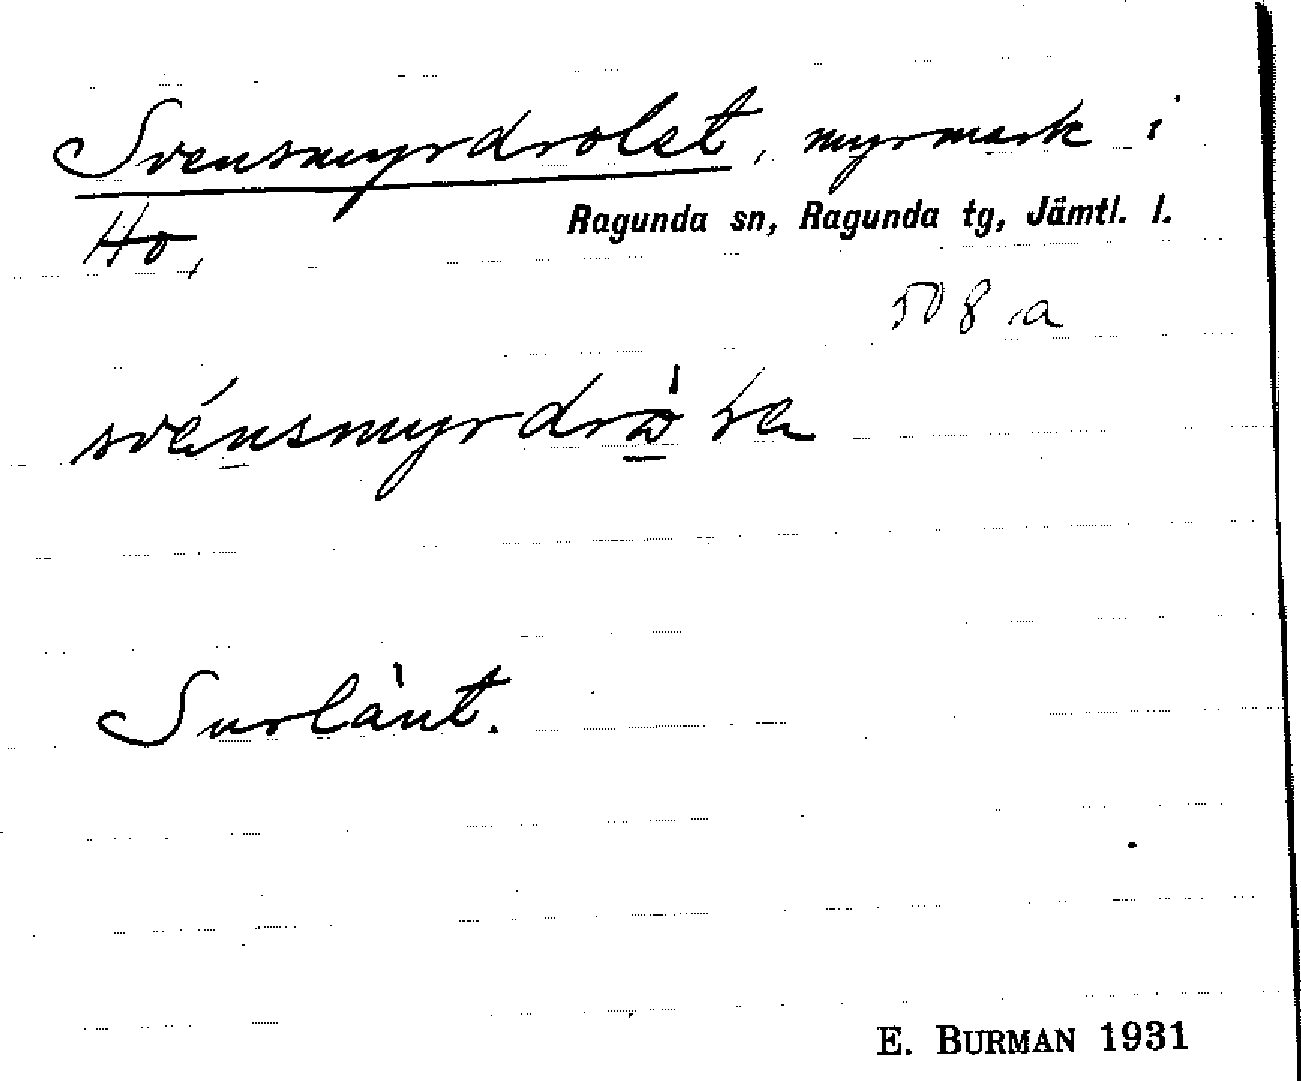 Svensmyrdrolet, myrmark i
Ho,
Ragunda sn, Ragunda tg, Jämtl. l.
508 a
Surlänt.
E. BURMAN 1931